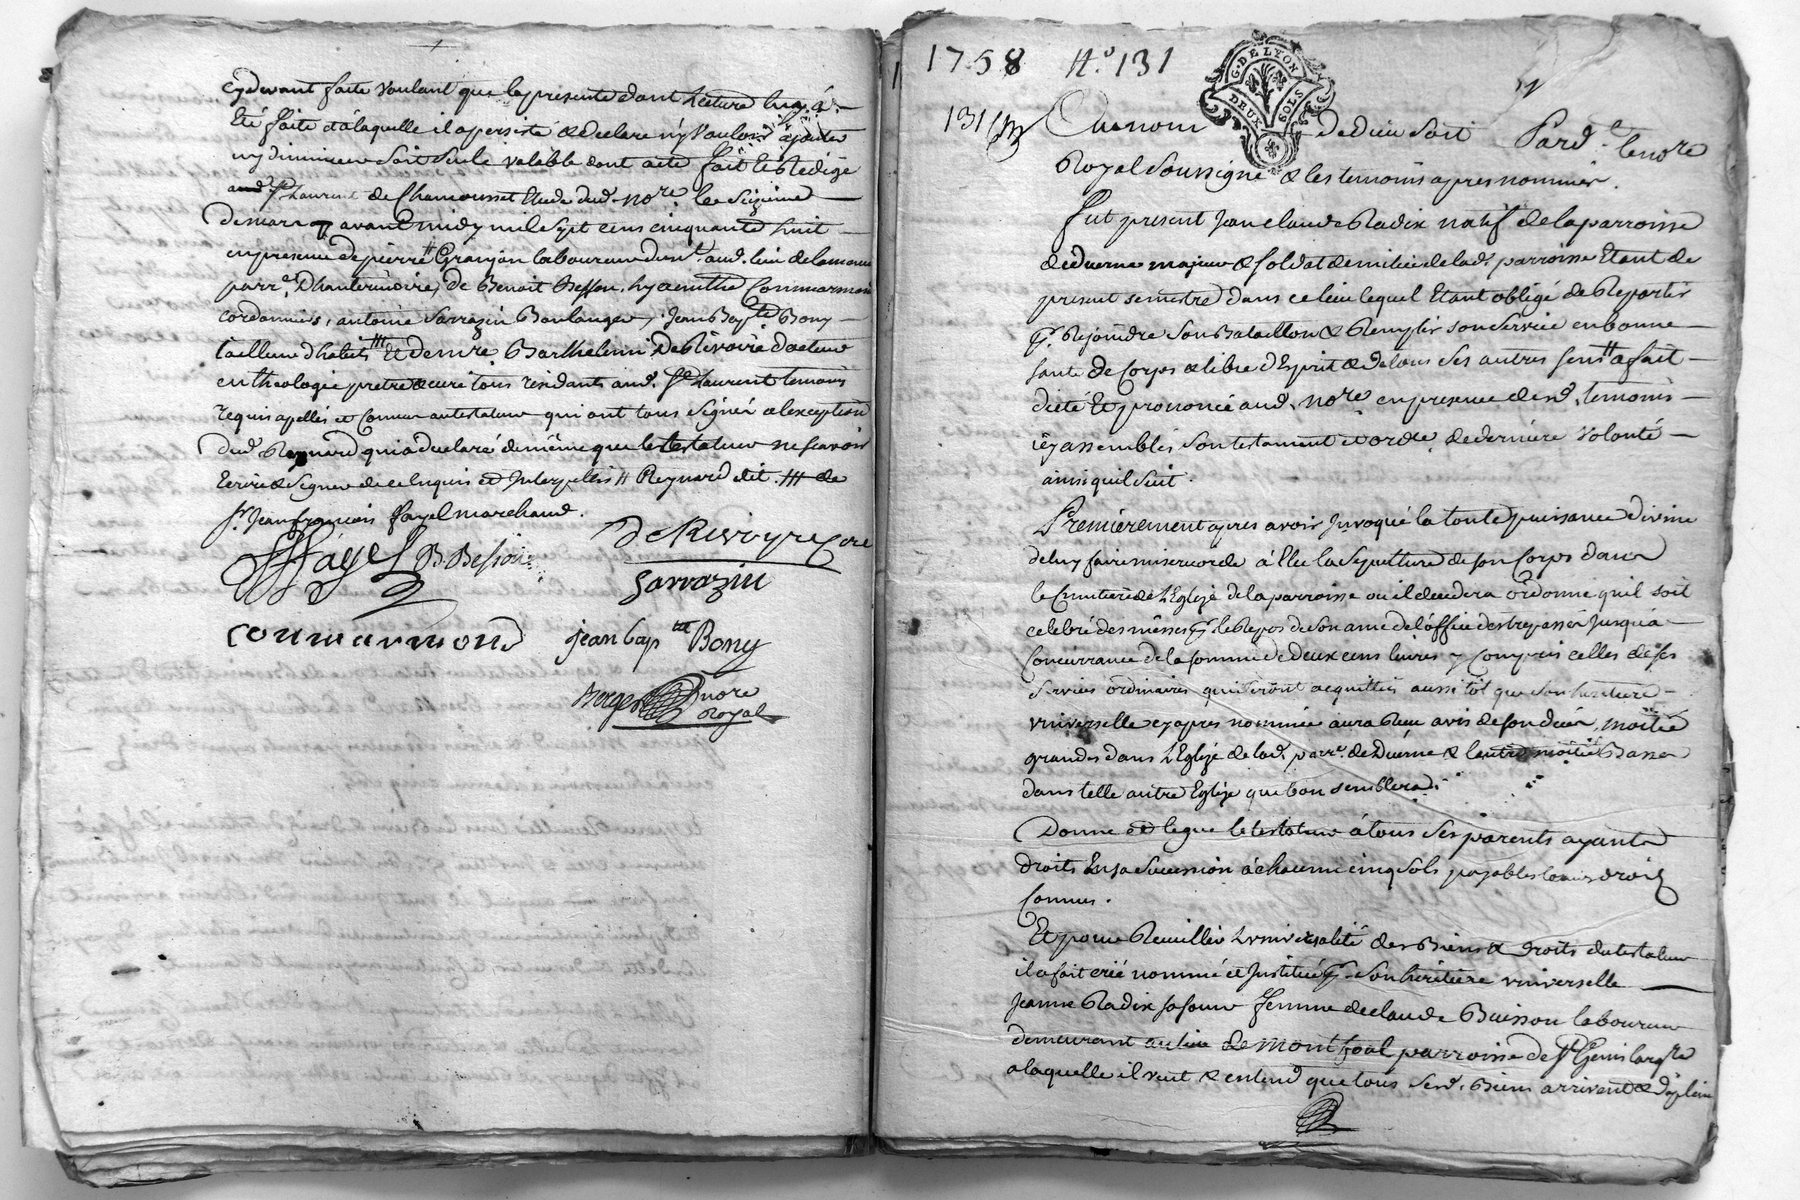 cydevant faite voulant que la presente dont Lecture luy á
Eté faite et á laquelle il a persisté & declare n'y Vouloir ajouter
ny diminuer soit seule valable dont acte fait et Redigé
aud. St Laurent de Chamousset Etude dud. nore. le sizieme
de mars avant midy mil sept cens cinquante huit
en presence de pierre # Granjon laboureur aud. lieu de
parr.e D'hauterivoire, de Benoit Besson, hyacinthe Commarmond
cordonniers, antoine Sarrazin Boulanger, Jean Bapte Bony
tailleur d'habits ### Et de mre Barthelemi De Rivoire docteur
en theologie pretre & curé tous residants aud. St Laurent temoins
requis apellés et Connus au testateur qui ont tous signés a l'exception
dud. Reynard qui a declaré de même que le testateur ne scavoir
Ecrire & signer de ce enquis et Interpellés # Reynard dit ### de
sr. Jean françois fayel marchand.
Fayel B. Besson De Rivoyre Curé
Sarrazin
Coumarmond jean bap te Bony
Berger nore
Royal
1758 N.º 131
G. DE LYON
DEUX SOLS
131 Au nom de Dieu soit Pard.t le nore
Royal soussigné & les temoins apres nommés.
Fut present Jean claude Radix natif de la parroisse
de duerne majeur & soldat de milice de lad. parroisse Etant de
present semestre dans ce lieu lequel Etant obligé de Repartir
pr. Rejoindre son Bataillon & Remplir son service en bonne
santé de Corps & libre d'Esprit & de tous ses autres sens a fait
dicté Et prononcé aud. nore en presence desd. temoins
icy assemblés son testament et ordre de derniere volonté
ainsi quil suit.
Premierement apres avoir Invoqué la toute puissance divine
de luy faire misericorde á Elu la sepulture de son Corps dans
le Cimetiere de l'Eglize de la parroisse ou il decedera ordonne qu'il soit
celebré des messes pr. le Repos de son ame de l'office des trepassés Jusqu'á
Concurrance de la somme de deux cens livres y Compris celles de ses
services ordinaires qui seront acquittés aussitôt que son heritiere
universelle cy apres nommée aura Reçu avis de son decés, moitié
grandes dans l'Eglize de lad. parre. de Duerne & l'autre moitié Basses
dans telle autre Eglize que bon semblera.
Donne et legue le testateur á tous ses parents ayants
droits En sa succession á chacun cinq sols payables leurs droits
Connus.
Et pour Recueillir L'universalité des Biens & droits du testateur
il a fait créé nommé et Institué pr. son heritiere universelle
Jeanne Radix sa soeur femme de claude Buisson laboureur
demeurant au lieu de montfoal parroisse de St Genis largre
a laquelle il veut & entend que tous sesd. Biens arrivent & de plein